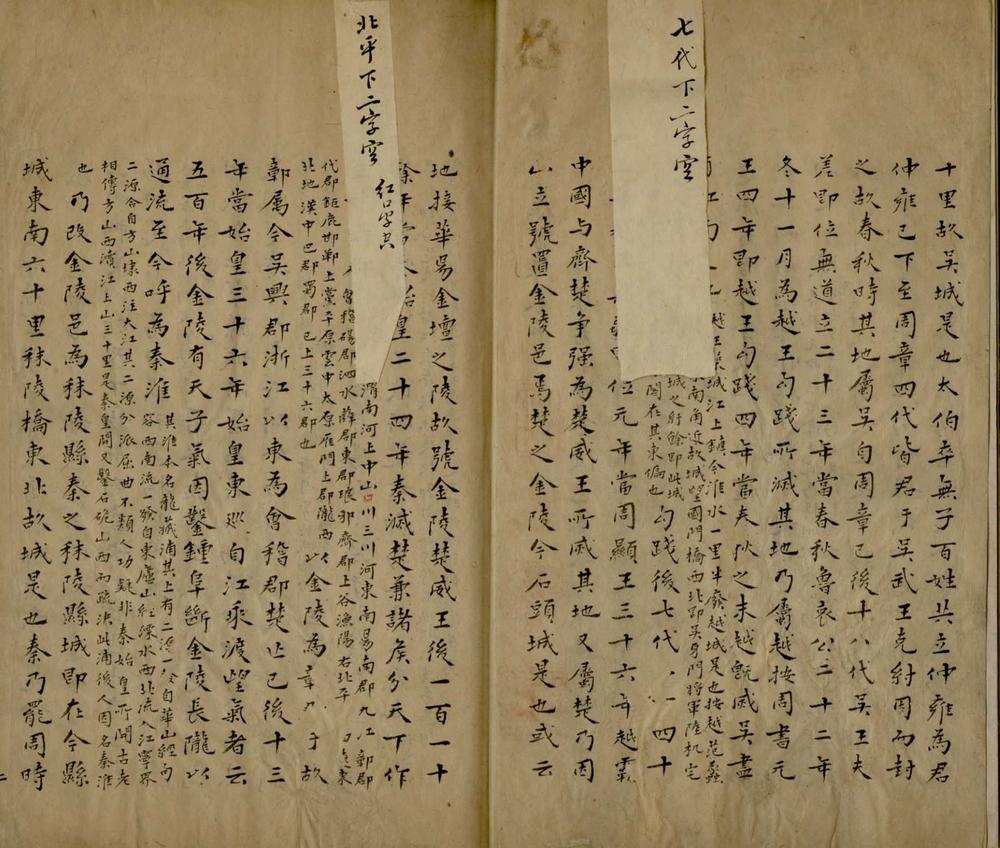 七代下二字空
十里故吴城是也太伯卒無子百姓共立仲雍為君
仲雍已下至周章四代皆君于吴武王克紂因而封
之故春秋時其地屬吴自周章已後十八代吴王夫
差即位無道立二十三年當春秋魯哀公二十二年
冬十一月為越王勾踐所滅其地乃屬越按周書元
王四年即越王勾踐四年當夫
之末越既滅吴盡
越城江上鎮今淮水一里半廢越城是也按越范蠡
南角近故城望國門橋西北即吴牙門將軍陸机宅
城之
餘即此城
在其東偏也
勾踐後七代
一四十
位元年當周顯王三十六年越霸
中國与齊楚争强為楚威王所滅其地又屬楚乃因
山立號置金陵邑焉楚之金陵今石頭城是也或云
北平下二字空
紅口字共
地接華陽金壇之陵故號金陵楚威王後一百一十
餘年當
始皇二十四年秦滅楚兼諸矦分天下作
渭南河上中山口川三川河東南陽南郡九江鄣郡
會稽碭郡泗水薛郡東郡琅邪齊郡上谷漁陽右北平
遼東
代郡鉅鹿邯鄲上黨平原雲中太原雁門上郡隴西
北地漢中巴郡蜀郡已上三十六郡也
以金陵為章
于故
鄣屬今吴興郡浙江以東為會稽郡楚亡已後十三
年當始皇三十六年始皇東巡自江乘渡望氣者云
五百年後金陵有天子氣因鑿鍾阜斷金陵長隴以
通流至今呼為秦淮
其淮本名龍藏浦其上有二源一發自華山經句
容西南流一發自東廬山經溧水西北流入江寧界
二源合自方山埭西注大江其二源分派屈曲不類人功疑非秦始皇所開古老
相傳方山西瀆江上山三十里是秦皇開又鑿石硊山西而疏决此浦後人因名秦淮
也
乃改金陵邑為秣陵縣秦之秣陵縣城即在今縣
城東南六十里秣陵橋東北故城是也秦乃罷周時